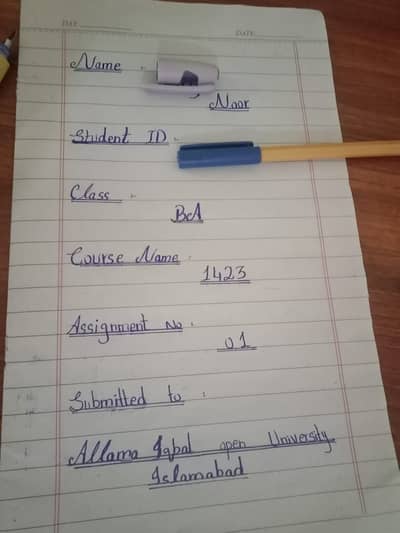 DAY
DATE
Name :
Noor
Student ID :
Class :
BA
Course Name :
1423
Assignment No :
01
Submitted to :
Allama Iqbal open University
Islamabad